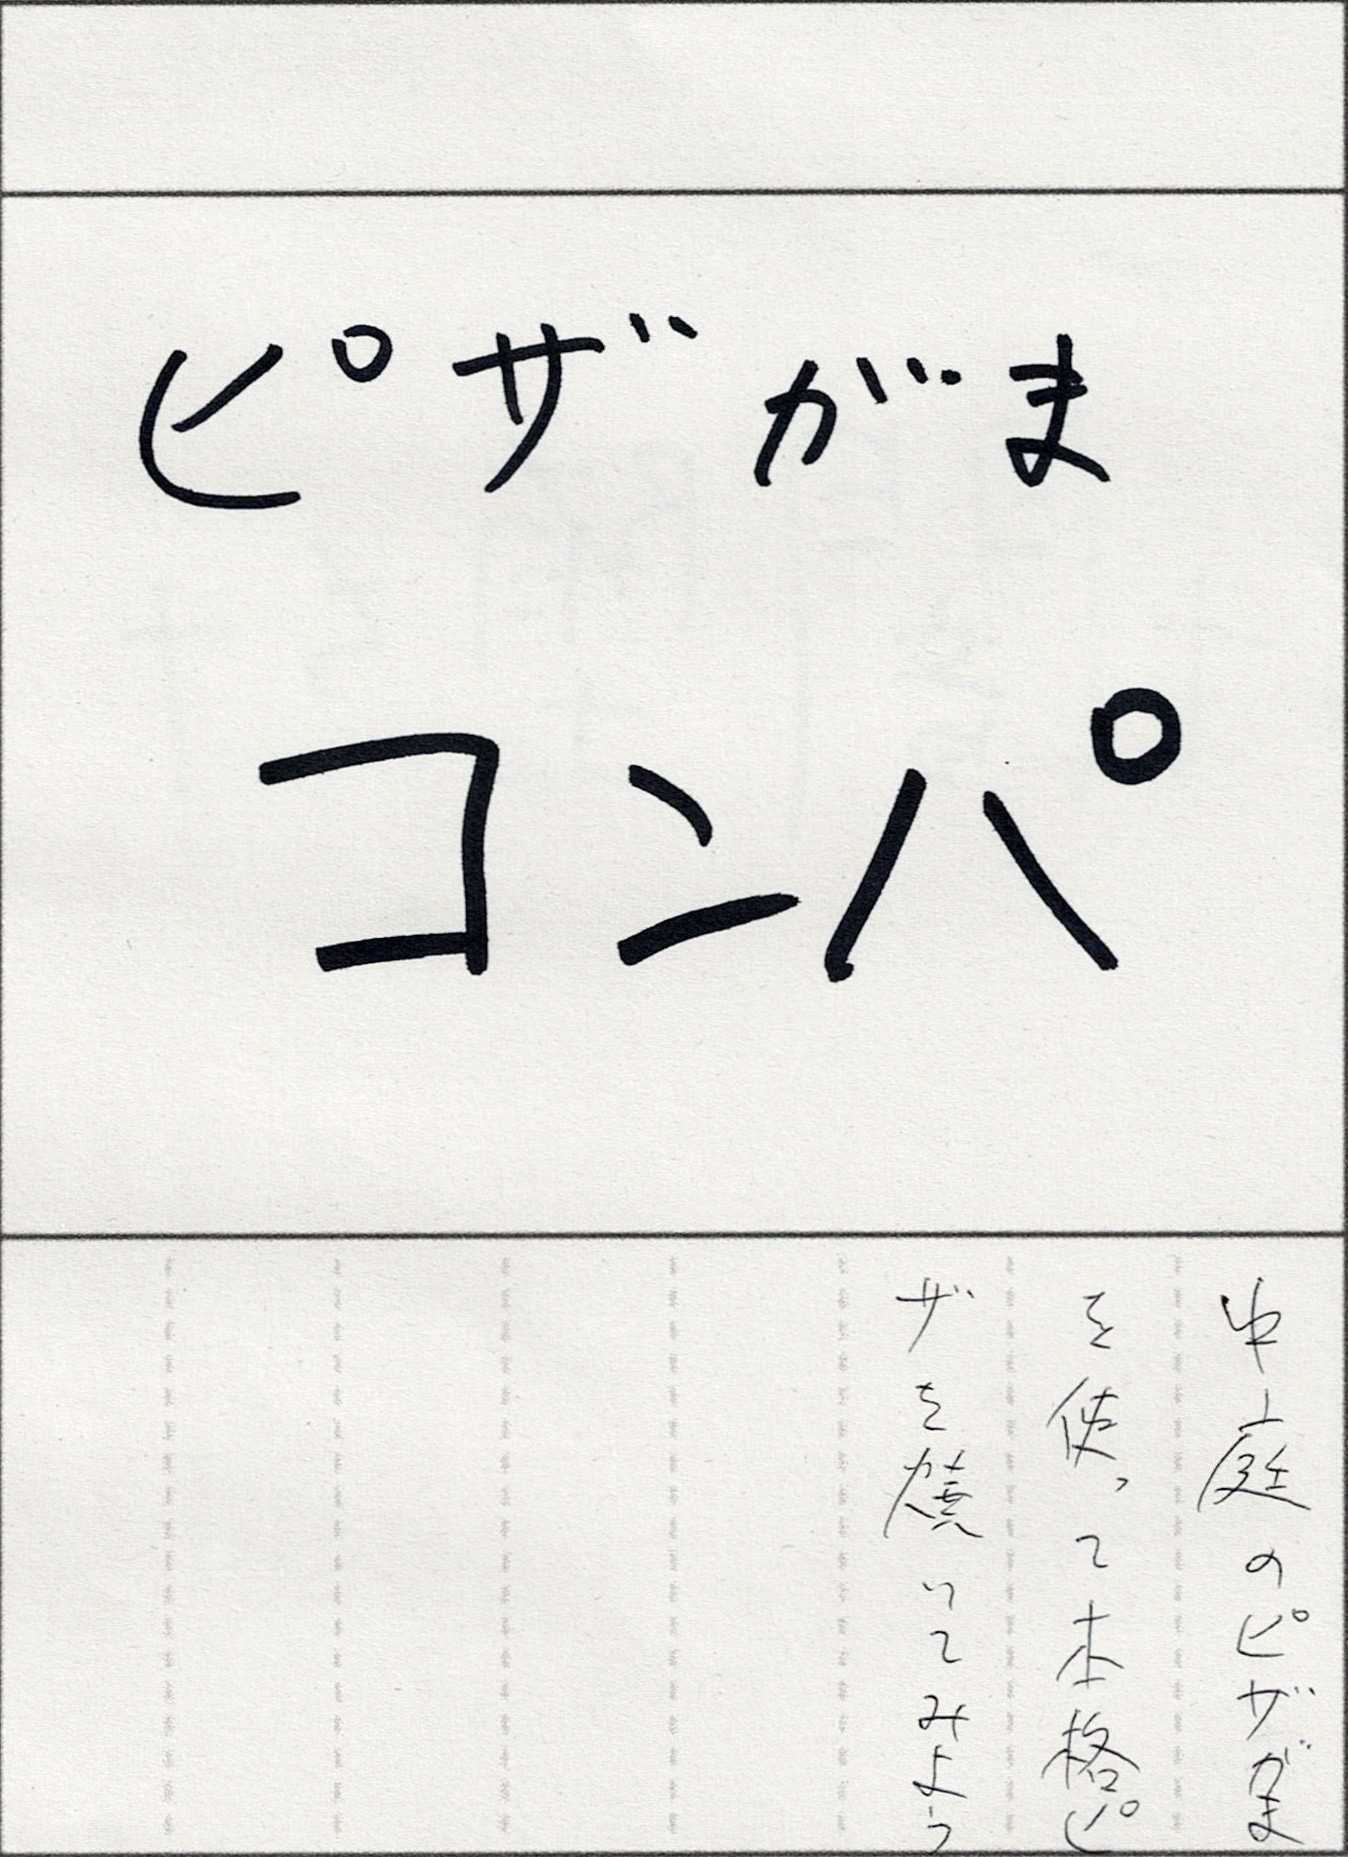 ピザがま
コンパ
中庭のピザがま
を使って本格ピ
ザを焼いてみよう